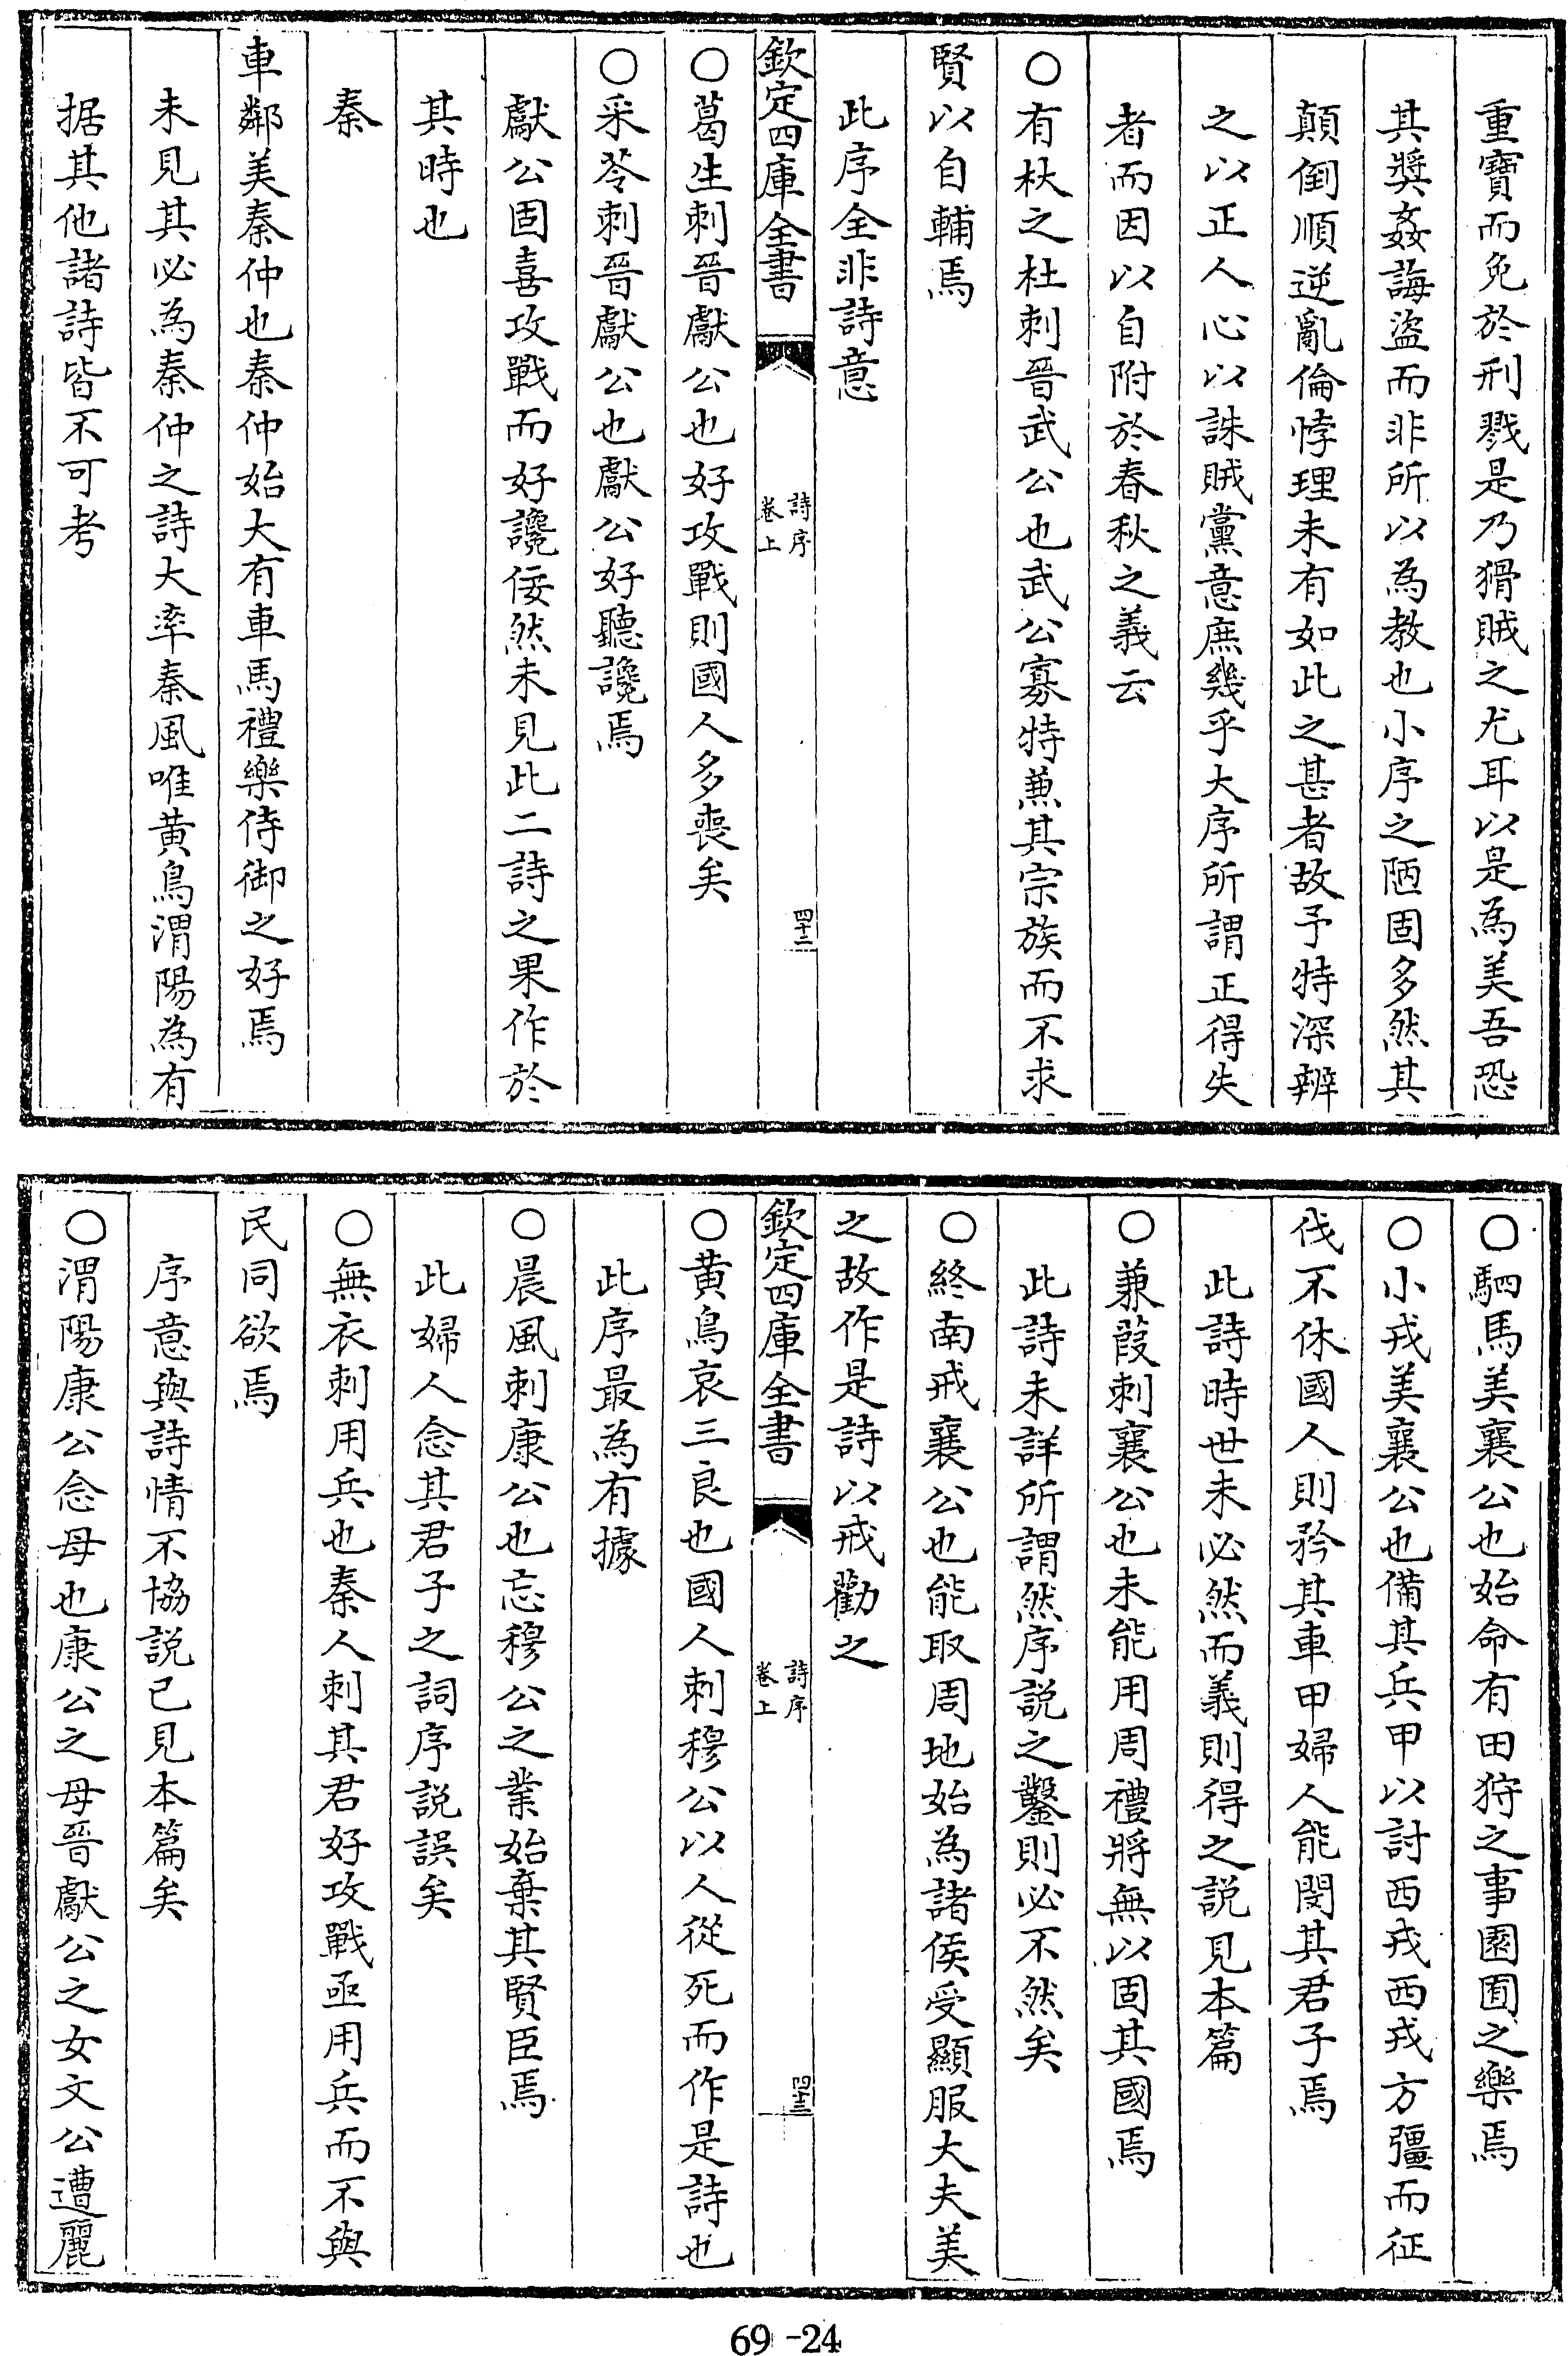 重寶而免於刑戮是乃猾賊之尤耳以是為美吾恐
其奬姦誨盜而非所以為教也小序之陋固多然其
顛倒順逆亂倫悖理未有如此之甚者故予特深辨
之以正人心以誅賊黨意庶幾乎大序所謂正得失
者而因以自附於春秋之義云
○有杕之杜刺晉武公也武公寡特兼其宗族而不求
賢以自輔焉
此序全非詩意
欽定四庫全書
詩序
卷上
四十二
○葛生刺晉獻公也好攻戰則國人多喪矣
○采苓刺晉獻公也獻公好聽讒焉
獻公固喜攻戰而好讒佞然未見此二詩之果作於
其時也
秦
車鄰美秦仲也秦仲始大有車馬禮樂侍御之好焉
未見其必為秦仲之詩大率秦風唯黄鳥渭陽為有
据其他諸詩皆不可考
○駟馬美襄公也始命有田狩之事園囿之樂焉
○小戎美襄公也備其兵甲以討西戎西戎方彊而征
伐不休國人則矜其車甲婦人能閔其君子焉
此詩時世未必然而義則得之説見本篇
○蒹葭刺襄公也未能用周禮將無以固其國焉
此詩未詳所謂然序説之鑿則必不然矣
○終南戒襄公也能取周地始為諸侯受顯服大夫美
之故作是詩以戒勸之
欽定四庫全書
詩序
卷上
四十三
○黄鳥哀三良也國人刺穆公以人從死而作是詩也
此序最為有據
○晨風刺康公也忘穆公之業始棄其賢臣焉
此婦人念其君子之詞序説誤矣
○無衣刺用兵也秦人刺其君好攻戰亟用兵而不與
民同欲焉
序意與詩情不協説已見本篇矣
○渭陽康公念母也康公之母晉獻公之女文公遭麗
69-24